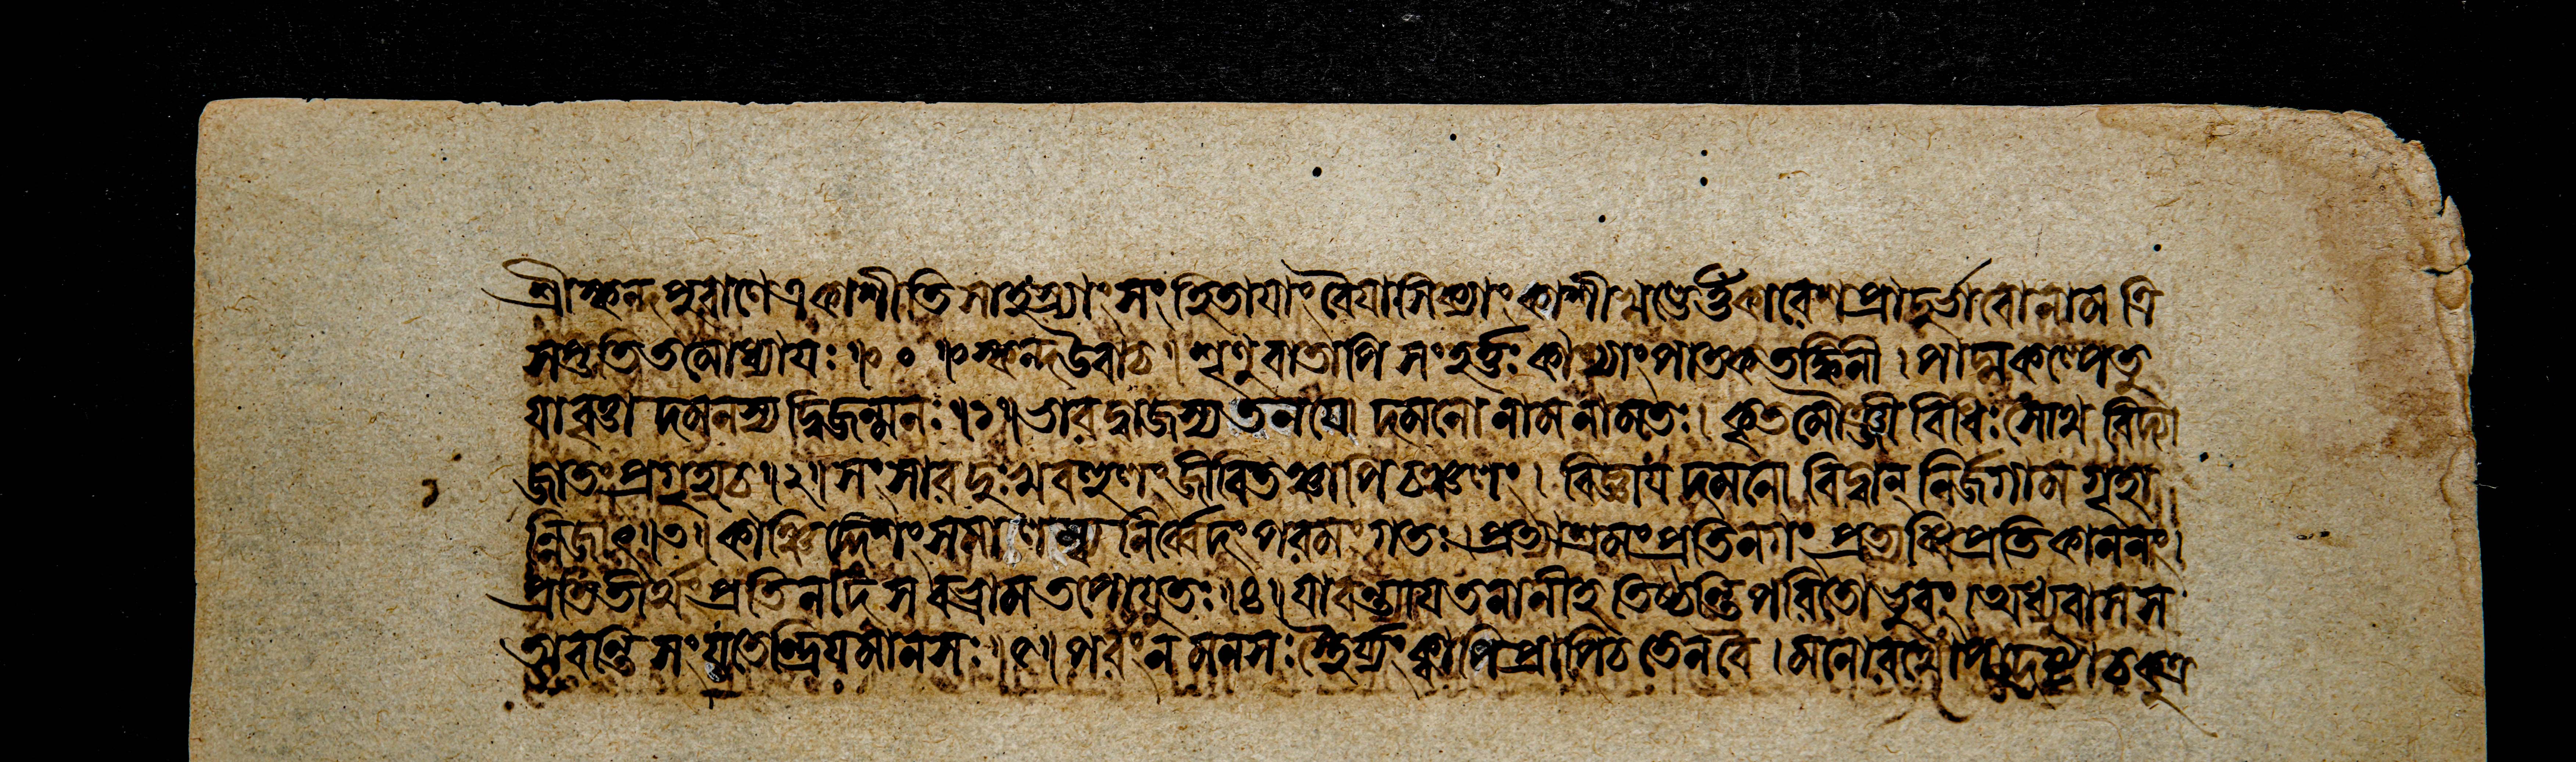 শ্রীস্কন্দপুরাণে একাশীতিসাহস্র্যাং সংহিতায়াং বৈয়াসিক্যাং কাশীখণ্ডে র্ত্তুকারেশপ্রাদুর্ভাবোনাম ত্রি
সপ্ততিতমোধ্যায়ঃ ॥০॥ স্কন্দ উবাচ । শৃণু বাতাপি সংহর্ত্তঃ কাশ্যাং পাতকতর্জ্জিনী । পাদ্মকল্পেতু
যা বৃত্তা দমনস্য দ্বিজন্মনঃ ॥১॥ ভারদ্বাজস্য তনয়ো দমনো নাম নামতঃ । কৃতমৌঞ্জীবিধিঃ সোথ বিদ্যা
জাতং প্রগৃহ্যচ ॥২॥ সংসারদুঃখবহুণং জীবিতঞ্চাপি চঞ্চলং । বিজ্ঞায় দমনো বিদ্বান্ নির্জগাম গৃহা
ন্নিজাৎ ॥৩॥ কাঞ্চিদ্দিশং সমালম্ব্য নির্ব্বেদং পরমং গতঃ । প্রত্যাশ্রমং প্রতিনগং প্রত্যব্ধি প্রতিকাননং ।
প্রতিতীর্থং প্রতিনদি স বভ্রাম তপোযুতঃ ॥৪॥ যাবন্ত্যায়তনানীহ তিষ্ঠন্তি পরিতো ভুবং । অধ্যুবাস স
তাবন্তি সংযতেন্দ্রিয়মানসঃ ॥৫॥ পরং ন মনসঃ স্থৈর্য্যং ক্বাপি প্রাপিচ তেন বৈ । মনোরথোপদেষ্টাচ কুত্র